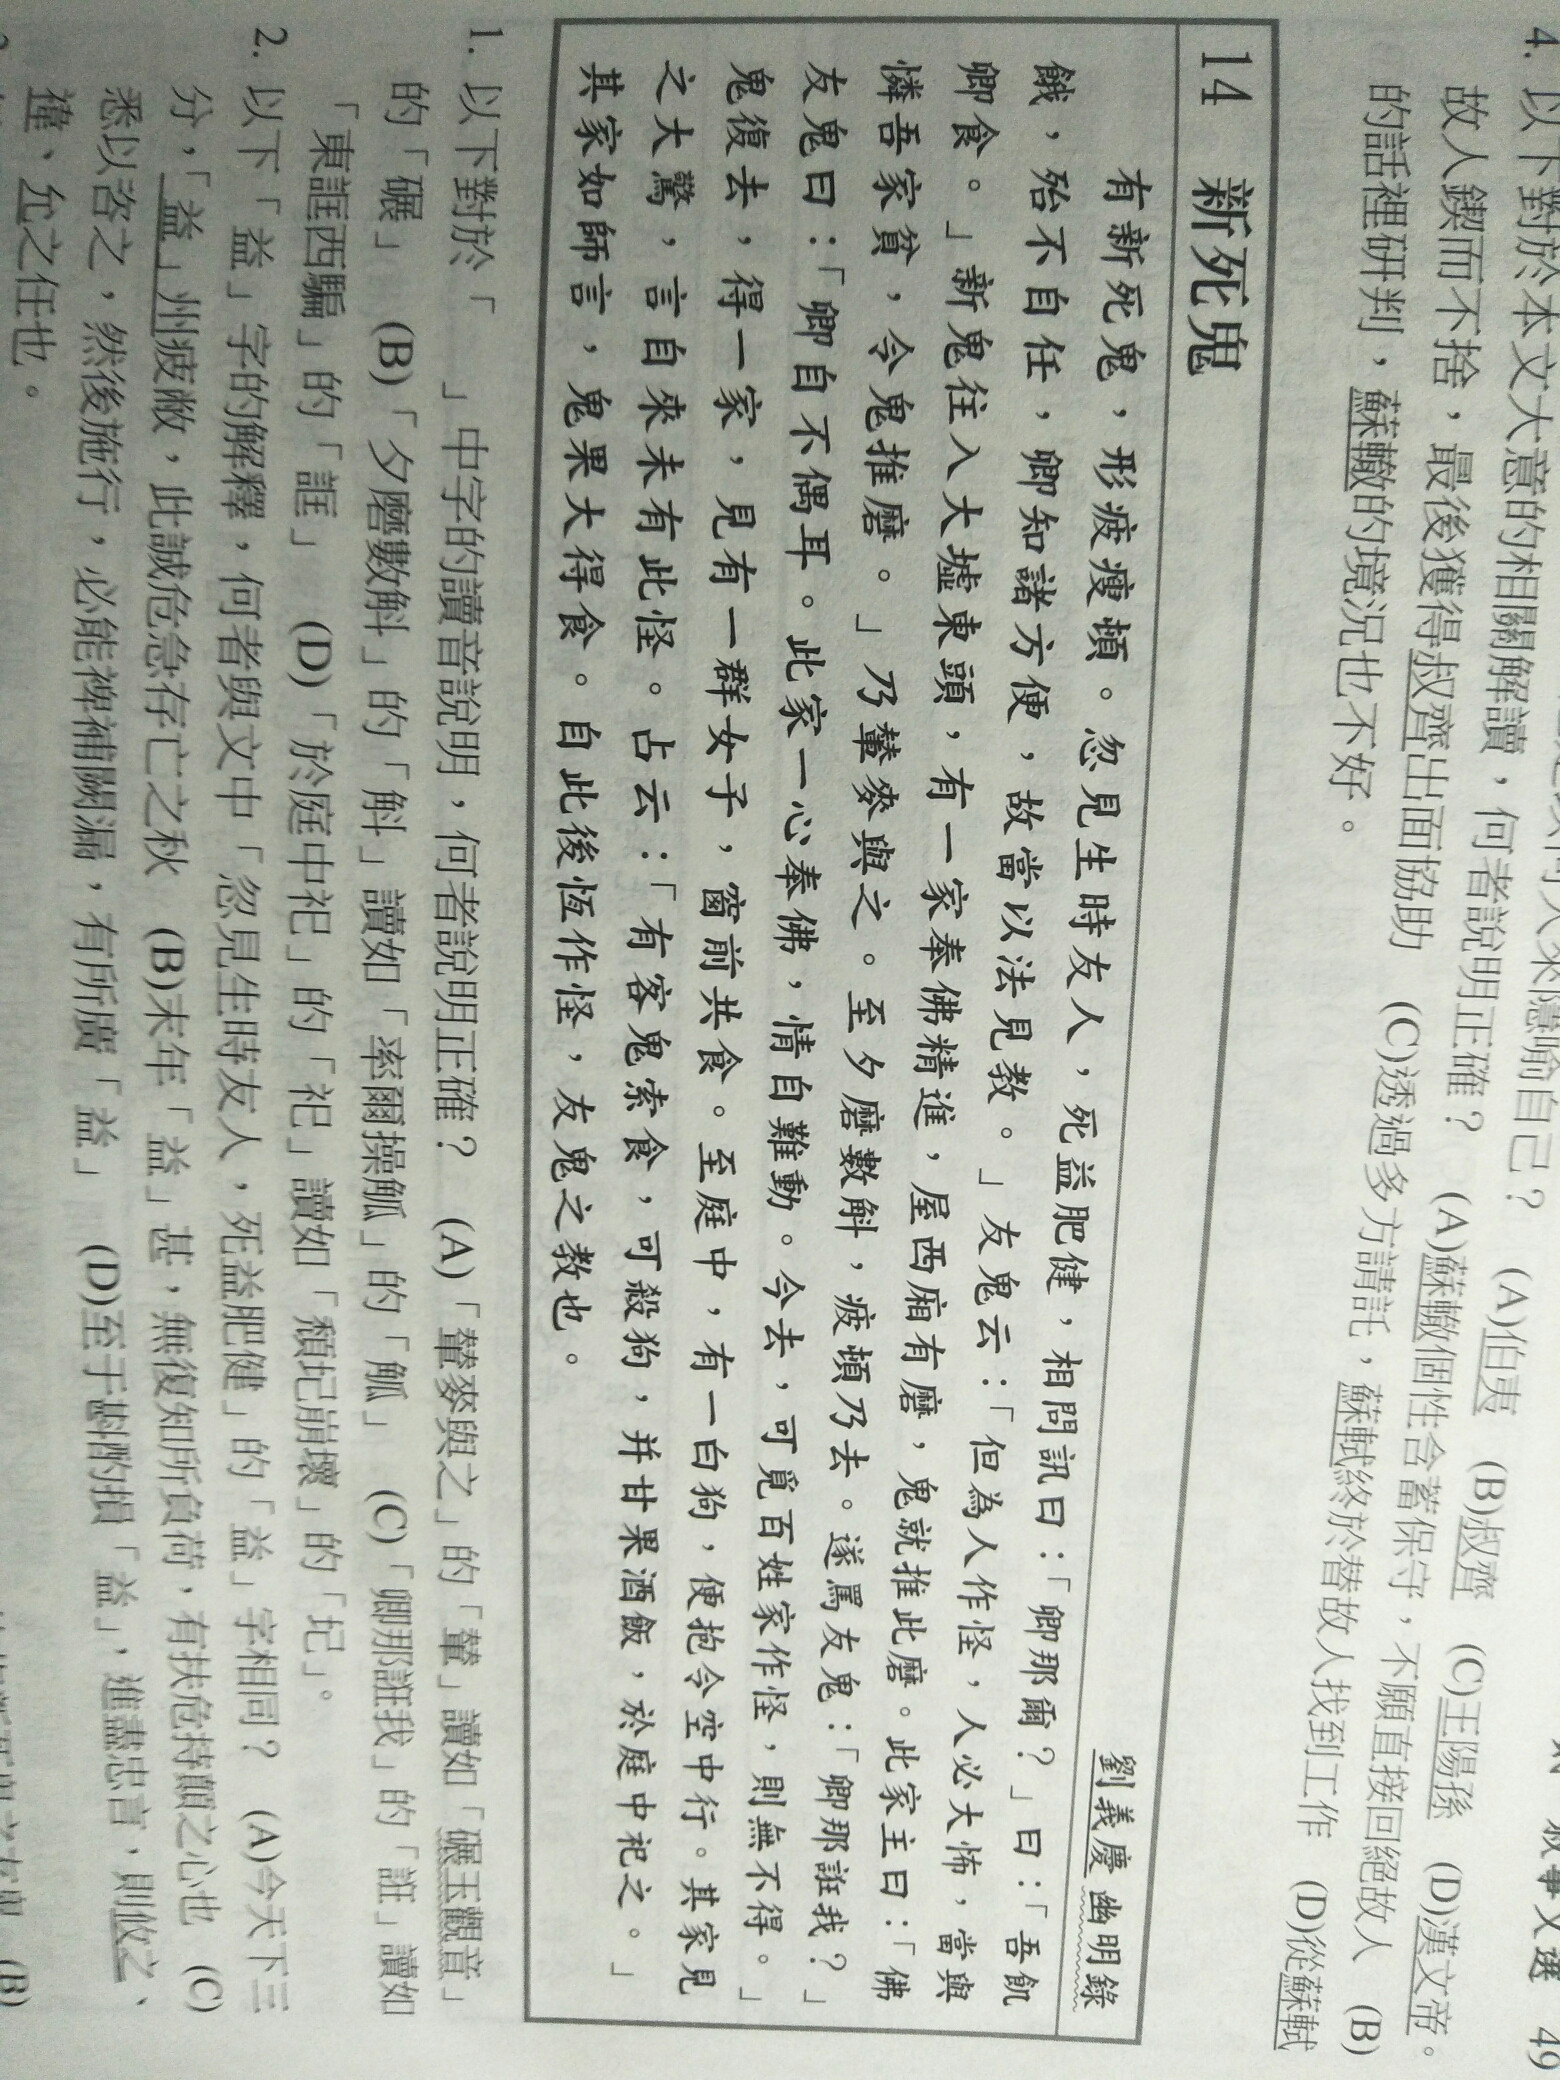 叙事文選 49
4. 以下對於本文大意的相關解讀，何者說明正確？ (A)蘇轍個性含蓄保守，不願直接回絕故人 (B)
故人鍥而不捨，最後獲得叔齊出面協助 (C)透過多方請託，蘇軾終於替故人找到工作 (D)從蘇軾
的話裡研判，蘇轍的境況也不好。
來隱喻自己？ (A)伯夷 (B)叔齊 (C)王陽孫 (D)漢文帝。
14 新死鬼
劉義慶 幽明錄
有新死鬼，形疲瘦頓。忽見生時友人，死益肥健，相問訊曰：「卿那爾？」曰：「吾飢
餓，殆不自任，卿知諸方便，故當以法見教。」友鬼云：「但為人作怪，人必大怖，當與
卿食。」新鬼往入大墟東頭，有一家奉佛精進，屋西廂有磨，鬼就推此磨。此家主曰：「佛
憐吾家貧，令鬼推磨。」乃輦麥與之。至夕磨數斛，疲頓乃去。遂罵友鬼：「卿那誑我？」
友鬼曰：「卿自不偶耳。此家一心奉佛，情自難動。今去，可覓百姓家作怪，則無不得。」
鬼復去，得一家，見有一群女子，窗前共食。至庭中，有一白狗，便抱令空中行。其家見
之大驚，言自來未有此怪。占云：「有客鬼索食，可殺狗，并甘果酒飯，於庭中祀之。」
其家如師言，鬼果大得食。自此後恆作怪，友鬼之教也。
1. 以下對於「 」中字的讀音說明，何者說明正確？ (A)「輦麥與之」的「輦」讀如「碾玉觀音」
的「碾」 (B)「夕磨數斛」的「斛」讀如「率爾操觚」的「觚」 (C)「卿那誑我」的「誑」讀如
「東誆西騙」的「誆」 (D)「於庭中祀」的「祀」讀如「頹圮崩壞」的「圮」。
2. 以下「益」字的解釋，何者與文中「忽見生時友人，死益肥健」的「益」字相同？ (A)今天下三
分，「益」州疲敝，此誠危急存亡之秋 (B)末年「益」甚，無復知所負荷，有扶危持顛之心也 (C)
悉以咨之，然後施行，必能裨補闕漏，有所廣「益」 (D)至于斟酌損「益」，進盡忠言，則攸之、
禕、允之任也。